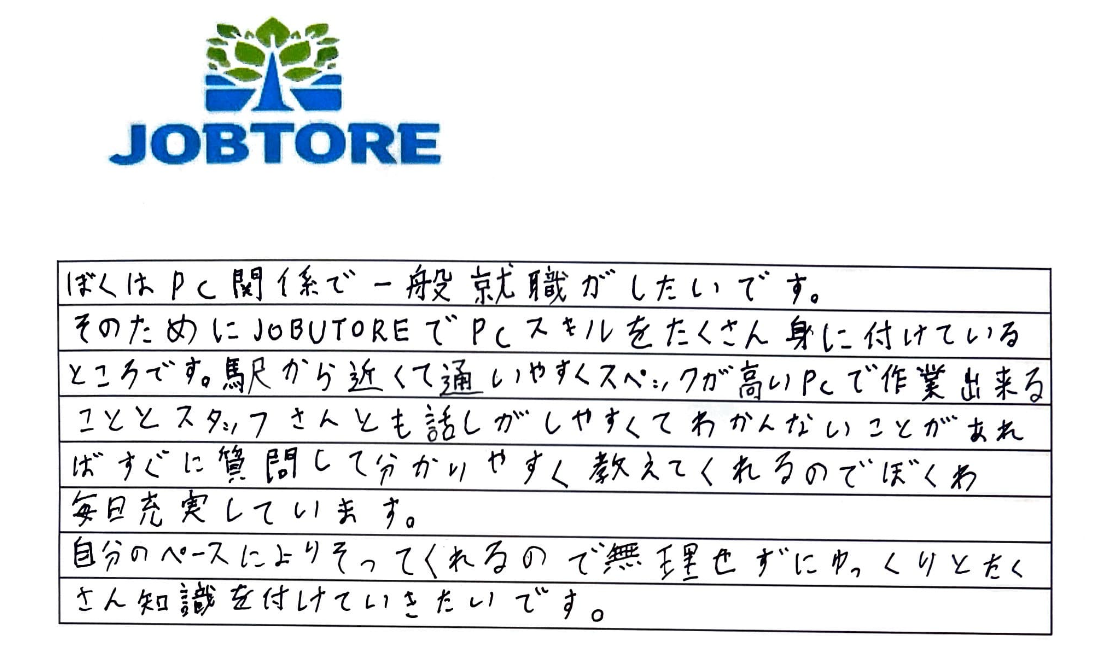 JOBTORE
ぼくはPC関係で一般就職がしたいです。
そのためにJOBUTOREでPCスキルをたくさん身に付けている
ところです。駅から近くて通いやすくスペックが高いPCで作業出来る
こととスタッフさんとも話しがしやすくてわかんないことがあれ
ばすぐに質問して分かりやすく教えてくれるのでぼくわ
毎日充実しています。
自分のペースによりそってくれるので無理せずにゆっくりとたく
さん知識を付けていきたいです。